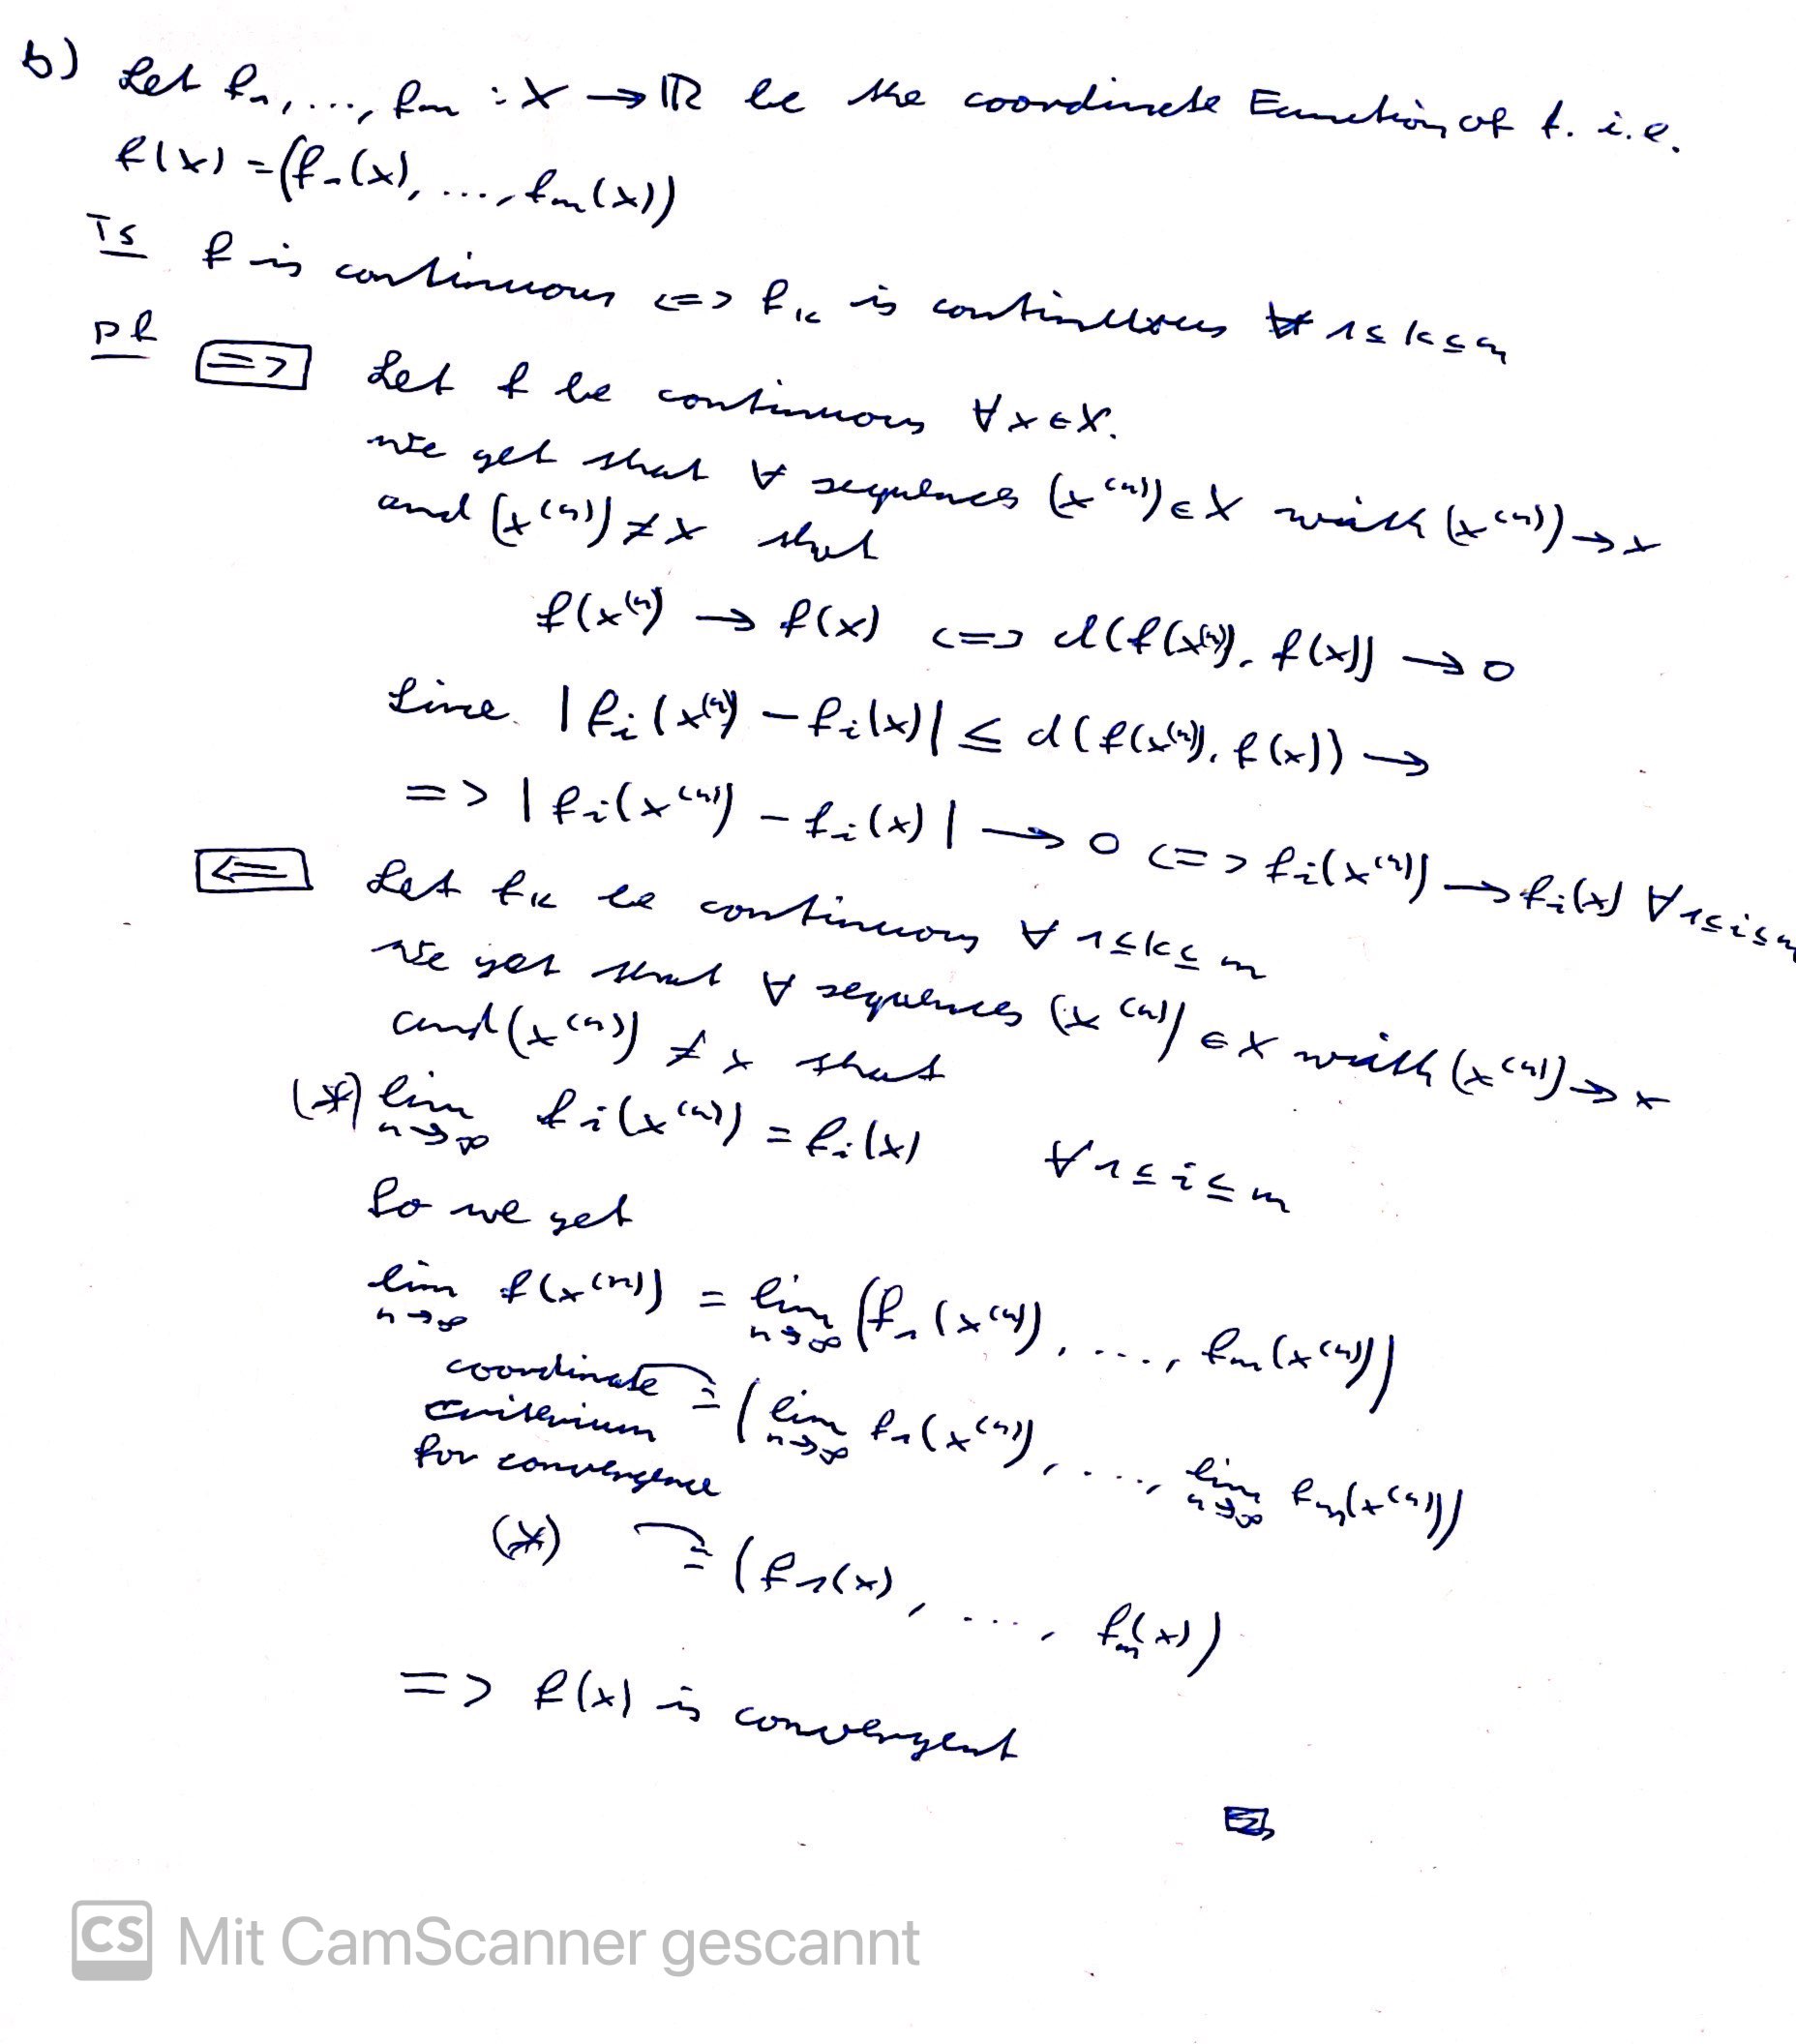 b) Let f₁, ..., fm : X → ℝ be the coordinate Function of f. i.e.
f(x) = (f₁(x), ..., fm(x))
TS f is continuous <=> fk is continuous ∀ 1 ≤ k ≤ m
Pf => Let f be continuous ∀ x ∈ X.
We get that ∀ sequences (x⁽ⁿ⁾) ∈ X with (x⁽ⁿ⁾) → x
and (x⁽ⁿ⁾) ≠ x that
f(x⁽ⁿ⁾) → f(x) <=> d(f(x⁽ⁿ⁾), f(x)) → 0
Since |fi(x⁽ⁿ⁾) − fi(x)| ≤ d(f(x⁽ⁿ⁾), f(x)) →
=> |fi(x⁽ⁿ⁾) − fi(x)| → 0 <=> fi(x⁽ⁿ⁾) → fi(x) ∀ 1 ≤ i ≤ m
<= Let fk be continuous ∀ 1 ≤ k ≤ m
We get that ∀ sequences (x⁽ⁿ⁾) ∈ X with (x⁽ⁿ⁾) → x
and (x⁽ⁿ⁾) ≠ x that
(*) lim n→∞ fi(x⁽ⁿ⁾) = fi(x) ∀ 1 ≤ i ≤ m
So we get
lim n→∞ f(x⁽ⁿ⁾) = lim n→∞ (f₁(x⁽ⁿ⁾), ..., fm(x⁽ⁿ⁾))
coordinate = (lim n→∞ f₁(x⁽ⁿ⁾), ..., lim n→∞ fm(x⁽ⁿ⁾))
criterium
for convergence
(*) = (f₁(x), ..., fm(x))
=> f(x) is convergent
CS Mit CamScanner gescannt